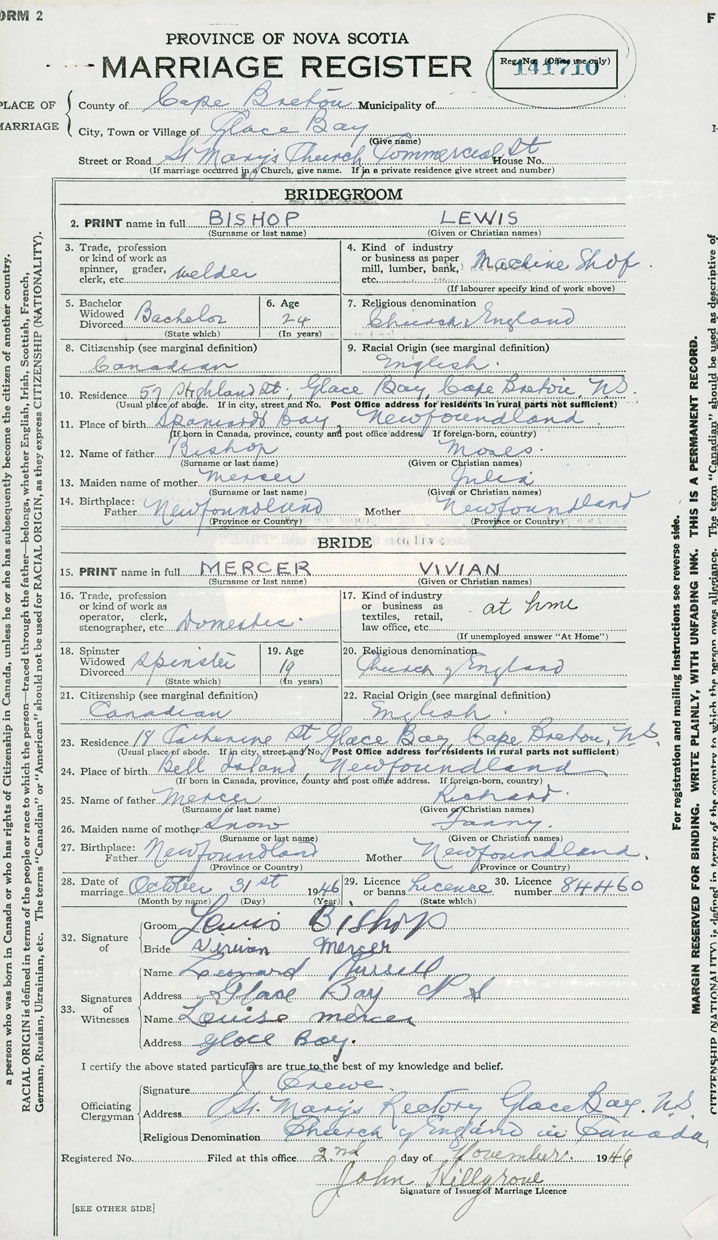 ORM 2
F
PROVINCE OF NOVA SCOTIA
MARRIAGE REGISTER
Reg. No. (Office use only)
141710
PLACE OF MARRIAGE
County of Cape Breton Municipality of
City, Town or Village of Glace Bay
(Give name)
Street or Road St Mary's Church Commercial St House No.
(If marriage occurred in a Church, give name. If in a private residence give street and number)
BRIDEGROOM
2. PRINT name in full BISHOP LEWIS
(Surname or last name) (Given or Christian names)
3. Trade, profession or kind of work as spinner, grader, clerk, etc. welder
4. Kind of industry or business as paper mill, lumber, bank, etc. Machine Shop
(If labourer specify kind of work above)
5. Bachelor Widowed Divorced Bachelor
(State which)
6. Age 24
(In years)
7. Religious denomination
Church of England
8. Citizenship (see marginal definition)
Canadian
9. Racial Origin (see marginal definition)
English.
10. Residence 57 Highland St, Glace Bay, Cape Breton, NS
(Usual place of abode. If in city, street and No. Post Office address for residents in rural parts not sufficient)
11. Place of birth Spaniards Bay, Newfoundland
(If born in Canada, province, county and post office address. If foreign-born, country)
12. Name of father Bishop Moses.
(Surname or last name) (Given or Christian names)
13. Maiden name of mother Mercer Julia
(Surname or last name) (Given or Christian names)
14. Birthplace: Father Newfoundland Mother Newfoundland
(Province or Country) (Province or Country)
BRIDE
15. PRINT name in full MERCER VIVIAN
(Surname or last name) (Given or Christian names)
16. Trade, profession or kind of work as operator, clerk, stenographer, etc. Domestic.
17. Kind of industry or business as textiles, retail, law office, etc. at home
(If unemployed answer "At Home")
18. Spinster Widowed Divorced Spinster
(State which)
19. Age 19
(In years)
20. Religious denomination
Church of England
21. Citizenship (see marginal definition)
Canadian
22. Racial Origin (see marginal definition)
English.
23. Residence 19 Catherine St Glace Bay, Cape Breton, NS.
(Usual place of abode. If in city, street and No. Post Office address for residents in rural parts not sufficient)
24. Place of birth Bell Island, Newfoundland
(If born in Canada, province, county and post office address. If foreign-born, country)
25. Name of father Mercer Richard.
(Surname or last name) (Given or Christian names)
26. Maiden name of mother Snow Fanny.
(Surname or last name) (Given or Christian names)
27. Birthplace: Father Newfoundland Mother Newfoundland.
(Province or Country) (Province or Country)
28. Date of marriage October 31st 1946
(Month by name) (Day) (Year)
29. Licence or banns Licence
(State which)
30. Licence number 84460
32. Signature of
Groom Lewis Bishop
Bride Vivian Mercer
33. Signatures of Witnesses
Name Leonard Russell
Address Glace Bay N S
Name Louise Mercer
Address Glace Bay.
I certify the above stated particulars are true to the best of my knowledge and belief.
Officiating Clergyman
Signature J. Crewe.
Address St. Mary's Rectory Glace Bay. N.S.
Religious Denomination Church of England in Canada
Registered No. Filed at this office 2nd day of November. 1946
John Hillgrove
Signature of Issuer of Marriage Licence
[SEE OTHER SIDE]
a person who was born in Canada or who has rights of Citizenship in Canada, unless he or she has subsequently become the citizen of another country.
RACIAL ORIGIN is defined in terms of the people or race to which the person—traced through the father—belongs, whether English, Irish, Scottish, French,
German, Russian, Ukrainian, etc. The terms "Canadian" or "American" should not be used for RACIAL ORIGIN, as they express CITIZENSHIP (NATIONALITY).
For registration and mailing instructions see reverse side.
MARGIN RESERVED FOR BINDING. WRITE PLAINLY, WITH UNFADING INK. THIS IS A PERMANENT RECORD.
CITIZENSHIP (NATIONALITY) is defined in terms of the country to which the person owes allegiance. The term "Canadian" should be used as descriptive of